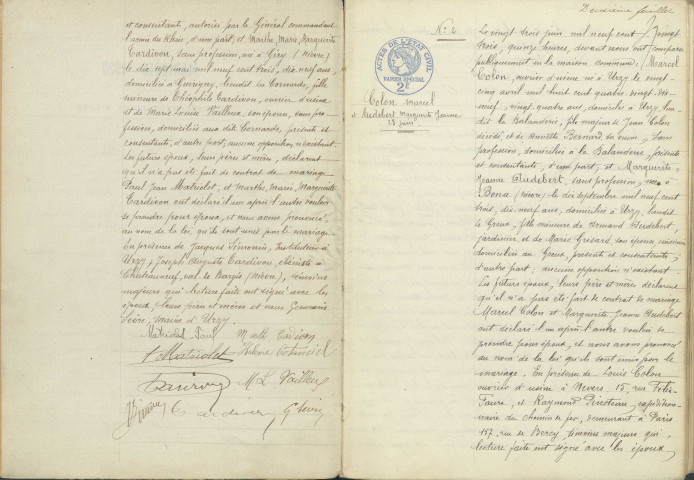 et consentante, autorisé par le Général commandant
l'armée du Rhin, d'une part, et Marthe, Marie, Marguerite
Cardivon, sans profession, née à Giry (Nièvre)
le dix sept mai mil neuf cent trois, dix neuf ans,
domiciliée à Guérigny, lieudit les Cornards, fille
mineure de Théophile Cardivon, ouvrier d'usine
et de Marie Louise Vailleux, son épouse, sans pro-
fession, domiciliés aux dits Cornards, présents et
consentants, d'autre part, aucune opposition n'existant.
Les futurs époux, leurs père et mères, déclarent
qu'il n'a pas été fait de contrat de mariage
Paul Jean Mathiolet, et Marthe, Marie, Marguerite
Cardivon ont déclaré l'un après l'autre vouloir
se prendre pour époux, et nous avons prononcé,
au nom de la loi, qu'ils sont unis par le mariage.
En présence de Jacques, Instituteur à
Urzy et Joseph Auguste Cardivon, ébéniste à
Châteauneuf, val de Bargis (Nièvre), témoins
majeurs qui lecture faite ont signé avec les
époux, leurs père et mères et nous Germain
maire d'Urzy.
Mathiolet Paul
M. L. Vailleux
Deuxième feuillet
N° 4
ACTES DE L'ÉTAT CIVIL
PAPIER SPÉCIAL
2F
Colon Marcel
et Audebert Marguerite Jeanne
23 juin
Le vingt trois juin mil neuf cent vingt
trois, quinze heures, devant nous ont comparu
publiquement en la maison commune: Marcel
Colon, ouvrier d'usine né à Urzy le vingt-
cinq avril mil huit cent quatre vingt dix
neuf, vingt quatre ans, domicilié à Urzy, lieu
dit la Balanderie, fils majeur de Jean Colon
décédé, et de Annette Bernard sa veuve, sans
profession, domiciliée à la Balanderie, présente
et consentante, d'une part; et Marguerite-
Jeanne Audebert, sans profession, née à
Bona (Nièvre) le dix septembre mil neuf cent
trois, dix neuf ans, domiciliée à Urzy, lieudit
le Greux, fille mineure de Audebert,
jardinier, et de Marie Gresard, son épouse,
domiciliés au Greux, présents et consentants,
d'autre part, aucune opposition n'existant.
Les futurs époux, leurs père et mères déclarent
qu'il n'a pas été fait de contrat de mariage
Marcel Colon et Marguerite Jeanne Audebert
ont déclaré l'un après l'autre vouloir se
prendre pour époux, et nous avons prononcé
au nom de la loi qu'ils sont unis par le
mariage. En présence de Louis Colon
ouvrier d'usine à Nevers, 15, rue Félix-
Faure, et Raymond
du chemin de fer, demeurant à Paris
157, rue de Bercy, témoins majeurs qui,
lecture faite ont signé avec les époux,